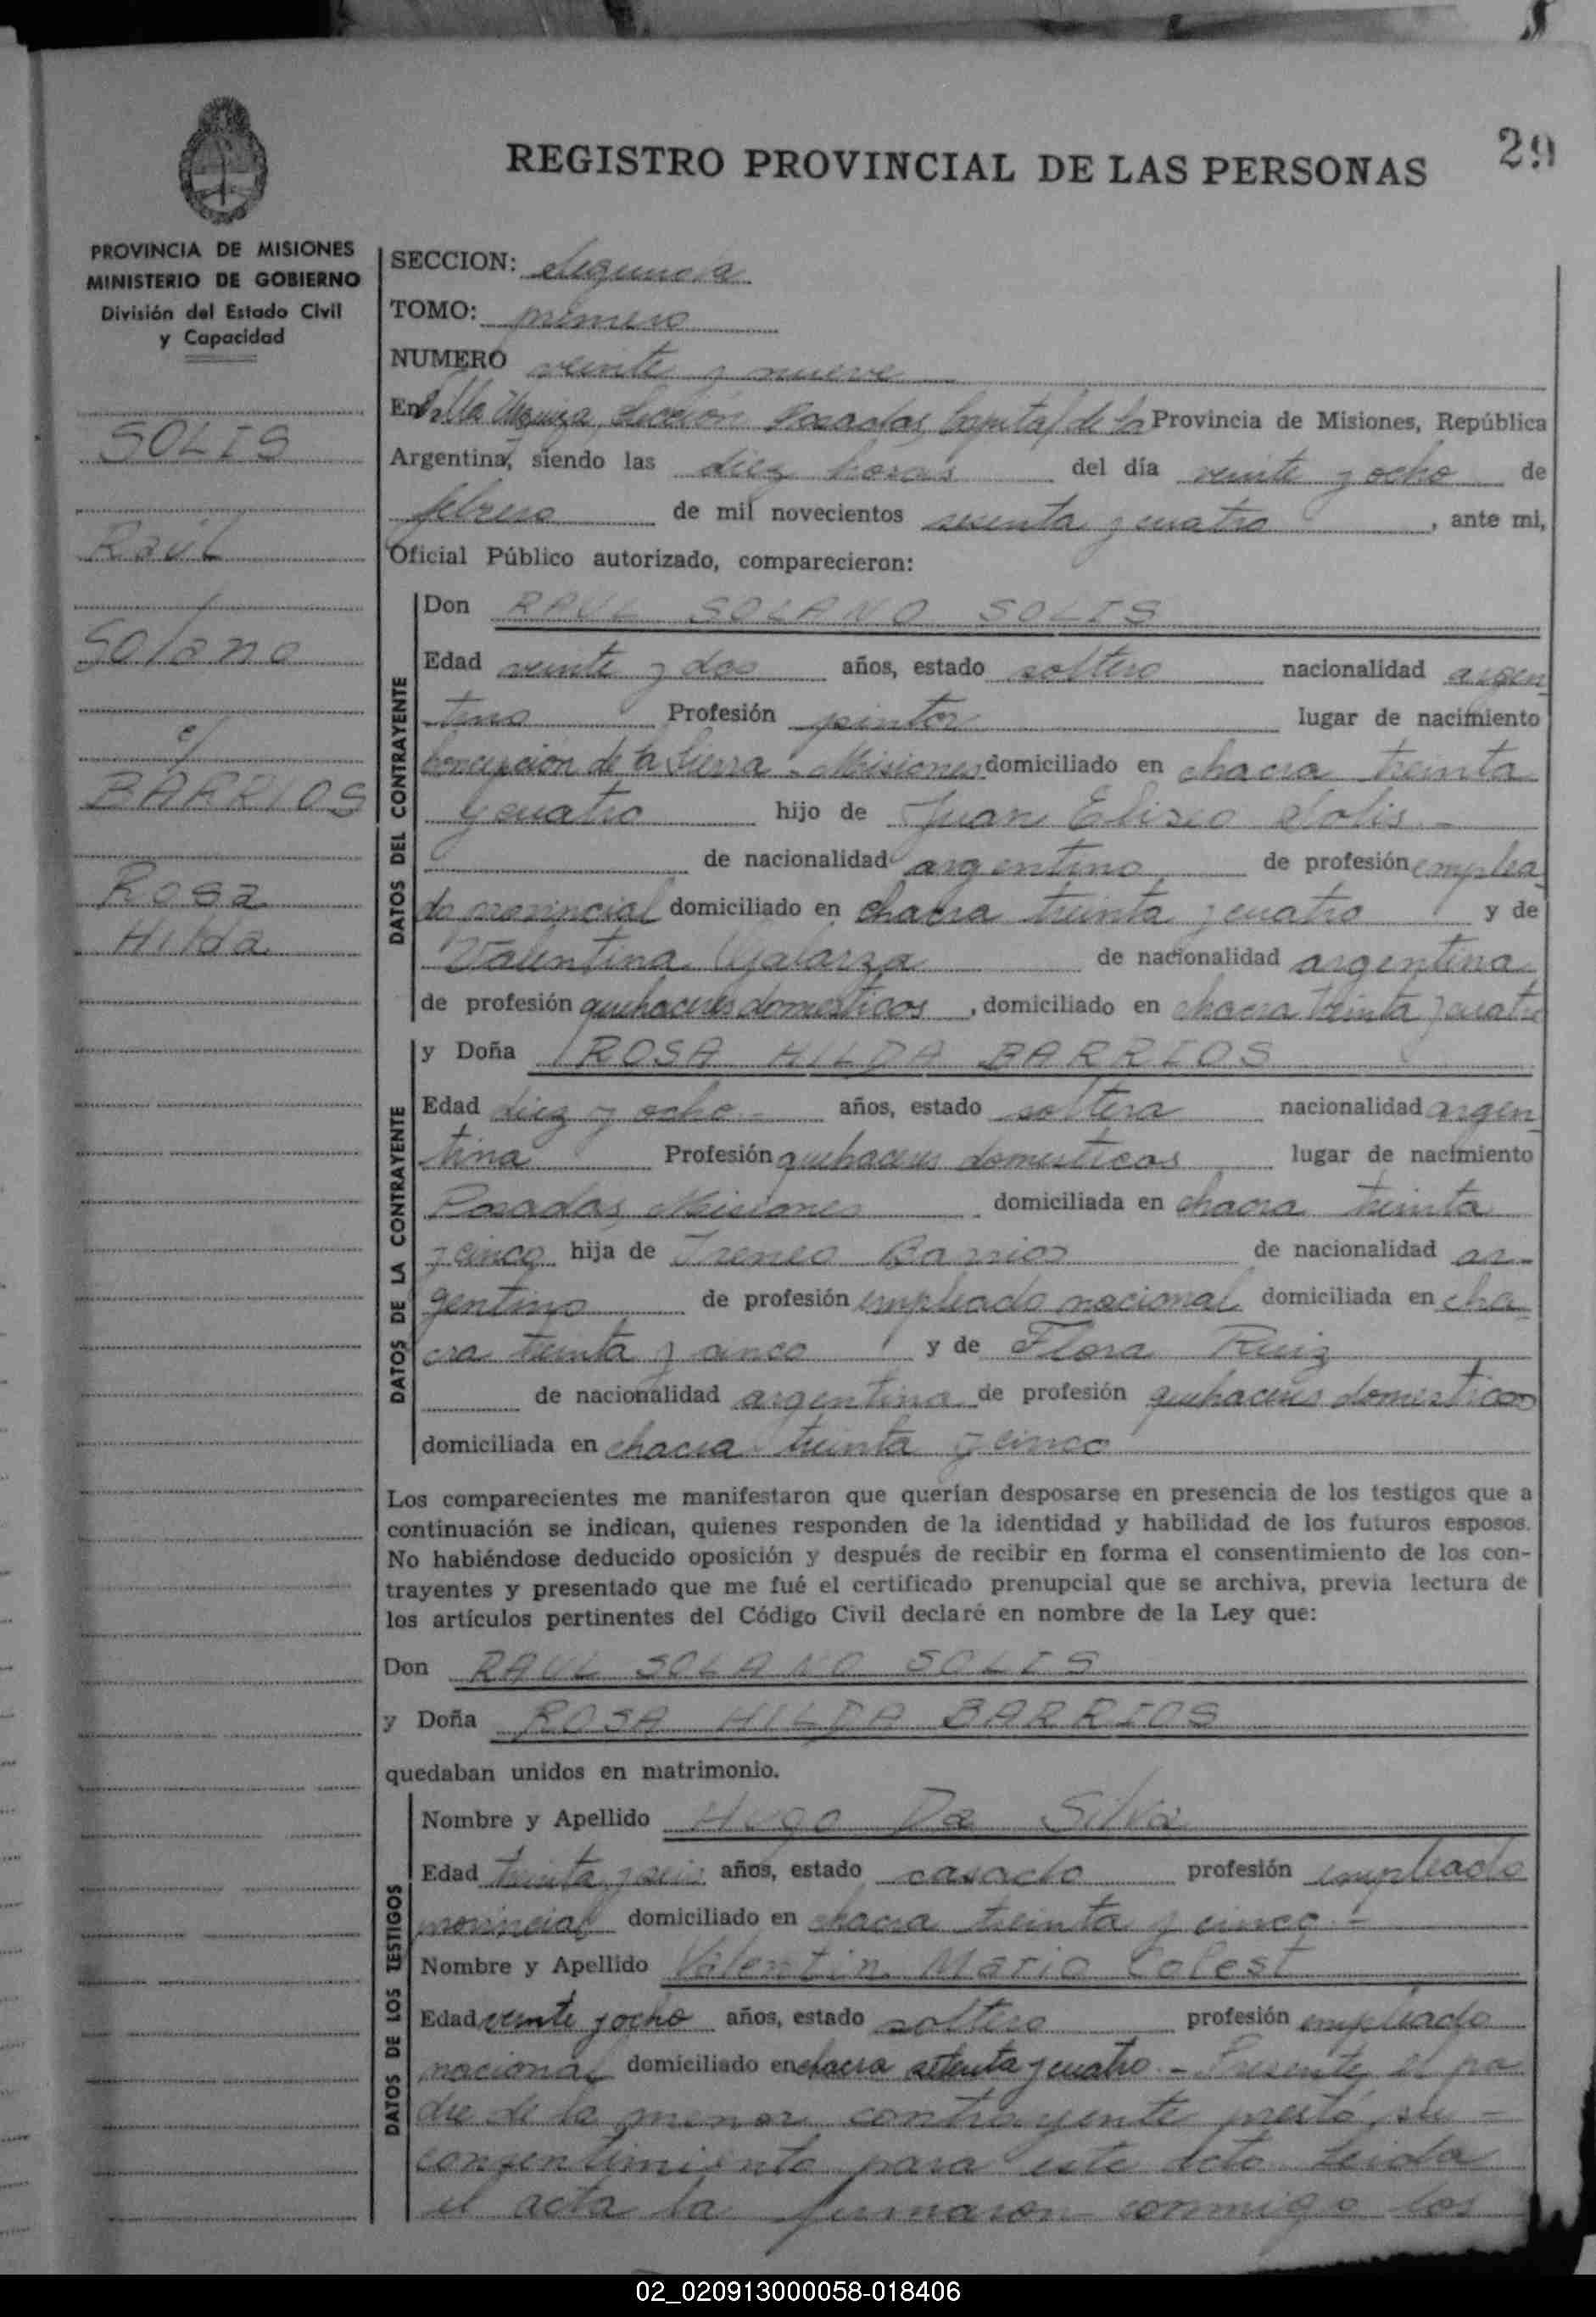 29
REGISTRO PROVINCIAL DE LAS PERSONAS
PROVINCIA DE MISIONES
MINISTERIO DE GOBIERNO
División del Estado Civil
y Capacidad
SOLIS
Raúl
Solano
c/
BARRIOS
Rosa
Hilda
SECCION: Segunda
TOMO: primero
NUMERO veinte y nueve
En Villa Urquiza, Sección Posadas, Capital de la Provincia de Misiones, República
Argentina, siendo las diez horas del día veinte y ocho de
febrero de mil novecientos sesenta y cuatro, ante mi,
Oficial Público autorizado, comparecieron:
DATOS DEL CONTRAYENTE
Don RAUL SOLANO SOLIS
Edad veinte y dos años, estado soltero nacionalidad argen
tino Profesión pintor lugar de nacimiento
Concepción de la Sierra - Misiones domiciliado en chacra treinta
y cuatro hijo de Juan Eliseo Solis -
de nacionalidad argentino de profesión emplea
do provincial domiciliado en chacra treinta y cuatro y de
Valentina Galarza de nacionalidad argentina
de profesión quehaceres domesticos, domiciliado en chacra treinta y cuatro
DATOS DE LA CONTRAYENTE
y Doña ROSA HILDA BARRIOS
Edad diez y ocho - años, estado soltera nacionalidad argen
tina Profesión quehaceres domesticos lugar de nacimiento
Posadas, Misiones domiciliada en chacra treinta
y cinco hija de Ireneo Barrios de nacionalidad ar-
gentino de profesión empleado nacional domiciliada en cha
cra treinta y cinco y de Flora Ruiz
de nacionalidad argentina de profesión quehaceres domesticos
domiciliada en chacra treinta y cinco
Los comparecientes me manifestaron que querían desposarse en presencia de los testigos que a
continuación se indican, quienes responden de la identidad y habilidad de los futuros esposos.
No habiéndose deducido oposición y después de recibir en forma el consentimiento de los con-
trayentes y presentado que me fué el certificado prenupcial que se archiva, previa lectura de
los artículos pertinentes del Código Civil declaré en nombre de la Ley que:
Don RAUL SOLANO SOLIS
y Doña ROSA HILDA BARRIOS
quedaban unidos en matrimonio.
DATOS DE LOS TESTIGOS
Nombre y Apellido Hugo Da Silva
Edad treinta y seis años, estado casado profesión empleado
provincial domiciliado en chacra treinta y cinco -
Nombre y Apellido Valentin Mario Colest
Edad veinte y ocho años, estado soltero profesión empleado
nacional domiciliado en chacra setenta y cuatro - Presente el pa
dre de la menor contrayente prestó su -
consentimiento para este acto Leida
el acta la firmaron conmigo los
02_020913000058-018406